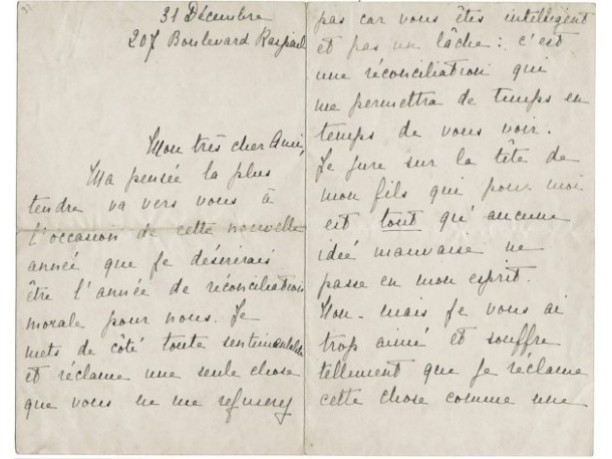 31 Décembre
207 Boulevard Raspail
Mon très cher Ami,
Ma pensée la plus
tendre va vers vous à
l'occasion de cette nouvelle
année que je désirerais
être l'année de réconciliation
morale pour nous. Je
mets de côté toute sentimentalité
et réclame une seule chose
que vous ne me refuserez
pas car vous êtes intelligent
et pas un lâche : c'est
une réconciliation qui
me permettra de temps en
temps de vous voir.
Je jure sur la tête de
mon fils qui pour moi
est tout qu'aucune
idée mauvaise ne
passe en mon esprit.
Non - mais je vous ai
trop aimé et souffre
tellement que je réclame
cette chose comme une